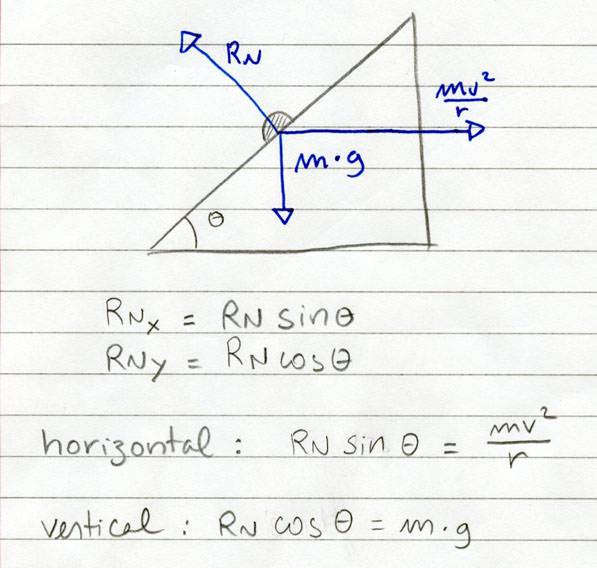 RN
mv²/r
m·g
θ
RNx = RN sinθ
RNy = RN cosθ
horizontal : RN sin θ = mv²/r
vertical : RN cos θ = m·g